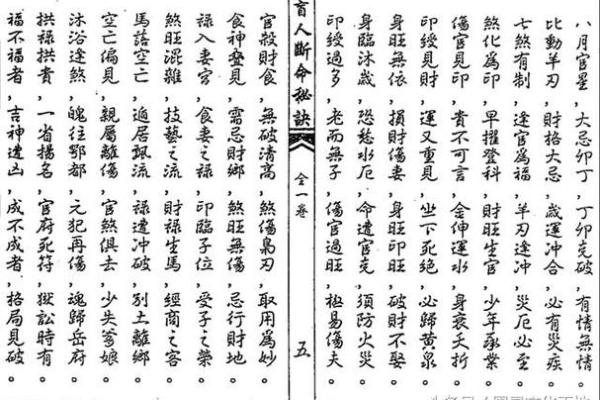 八月官星，大忌卯丁，丁卯克破，有情無情。
比動羊刃，財格大忌，歲運冲合，必有災疾。
七煞有制，逢官爲福，羊刃逢冲，災厄必至。
煞化爲印，早擢登科，財旺生官，少年承業。
傷官見印，貴不可言，金伸運水，身衰夭折。
印綬見財，運又重見，坐下死絕，必歸黃泉。
身旺無依，損財傷妻，身旺印旺，破財不娶。
身臨沐歲，恐愁水厄，命遭官克，須防火災。
印綬過多，老而無子，傷官過旺，極易傷夫。
盲人断命秘訣 全一卷 五
官殺財食，無破清高，煞傷梟刃，取用爲妙。
食神疊見，需忌財鄉，煞旺無傷，忌行財地。
禄入妻宮，食妻之禄，印臨子位，受子之榮。
煞旺混雜，技藝之流，財禄生馬，經商之客。
馬落空亡，遁居飄流，禄遭冲破，別土離鄉。
空亡偏見，親屬離傷，官煞俱去，少失爹娘。
沐浴逢煞，魄往鄷都，元犯再傷，魂歸岳府。
拱禄拱貴，一省揚名，官府死符，獄訟時有。
福不福者，吉神遭凶，成不成者，格局見破。